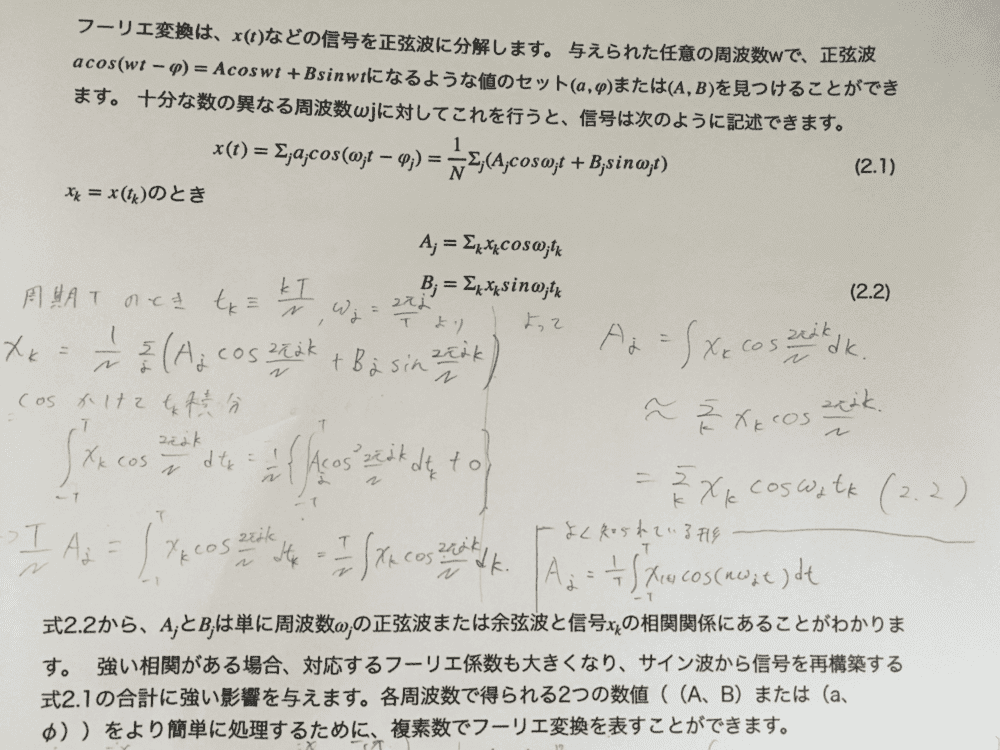 フーリエ変換は、x(t)などの信号を正弦波に分解します。 与えられた任意の周波数wで、正弦波
acos(wt − φ) = Acoswt + Bsinwtになるような値のセット(a, φ)または(A, B)を見つけることができ
ます。 十分な数の異なる周波数ωjに対してこれを行うと、信号は次のように記述できます。
x(t) = Σ_j a_j cos(ω_j t − φ_j) = 1/N Σ_j (A_j cosω_j t + B_j sinω_j t) (2.1)
x_k = x(t_k)のとき
A_j = Σ_k x_k cosω_j t_k
B_j = Σ_k x_k sinω_j t_k (2.2)
周期T のとき t_k ≡ kT/N , ω_j = 2πj/T より
x_k = 1/N Σ_j (A_j cos 2πjk/N + B_j sin 2πjk/N)
cos かけて t_k 積分
∫_{-T}^{T} x_k cos 2πjk/N dt_k = 1/N { ∫_{-T}^{T} A_j cos² 2πjk/N dt_k + 0 }
→ T/N A_j = ∫_{-T}^{T} x_k cos 2πjk/N dt_k = T/N ∫ x_k cos 2πjk/N dk.
よって
A_j = ∫ x_k cos 2πjk/N dk.
≈ Σ_k x_k cos 2πjk/N.
= Σ_k x_k cosω_j t_k (2.2)
よく知られている形
A_j = 1/T ∫_{-T}^{T} x(t) cos(nω_j t) dt
式2.2から、A_jとB_jは単に周波数ω_jの正弦波または余弦波と信号x_kの相関関係にあることがわかりま
す。 強い相関がある場合、対応するフーリエ係数も大きくなり、サイン波から信号を再構築する
式2.1の合計に強い影響を与えます。各周波数で得られる2つの数値（（A、B）または（a、
ϕ））をより簡単に処理するために、複素数でフーリエ変換を表すことができます。